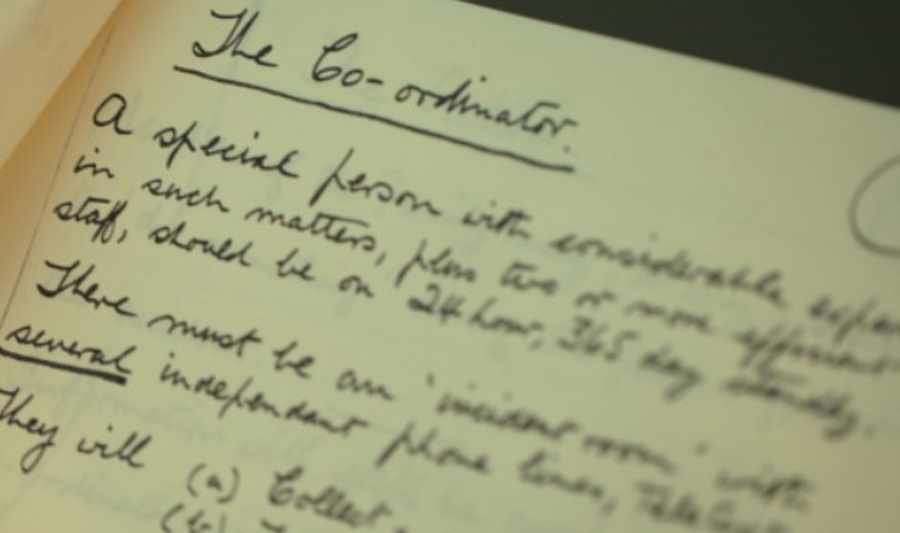 The Co-ordinator.
A special person with considerable
in such matters, plus two or more efficient
staff, should be on 24 hour, 365 day standby.
There must be an 'incident room' with
several independent phone lines,
They will (a) Collect
(b)